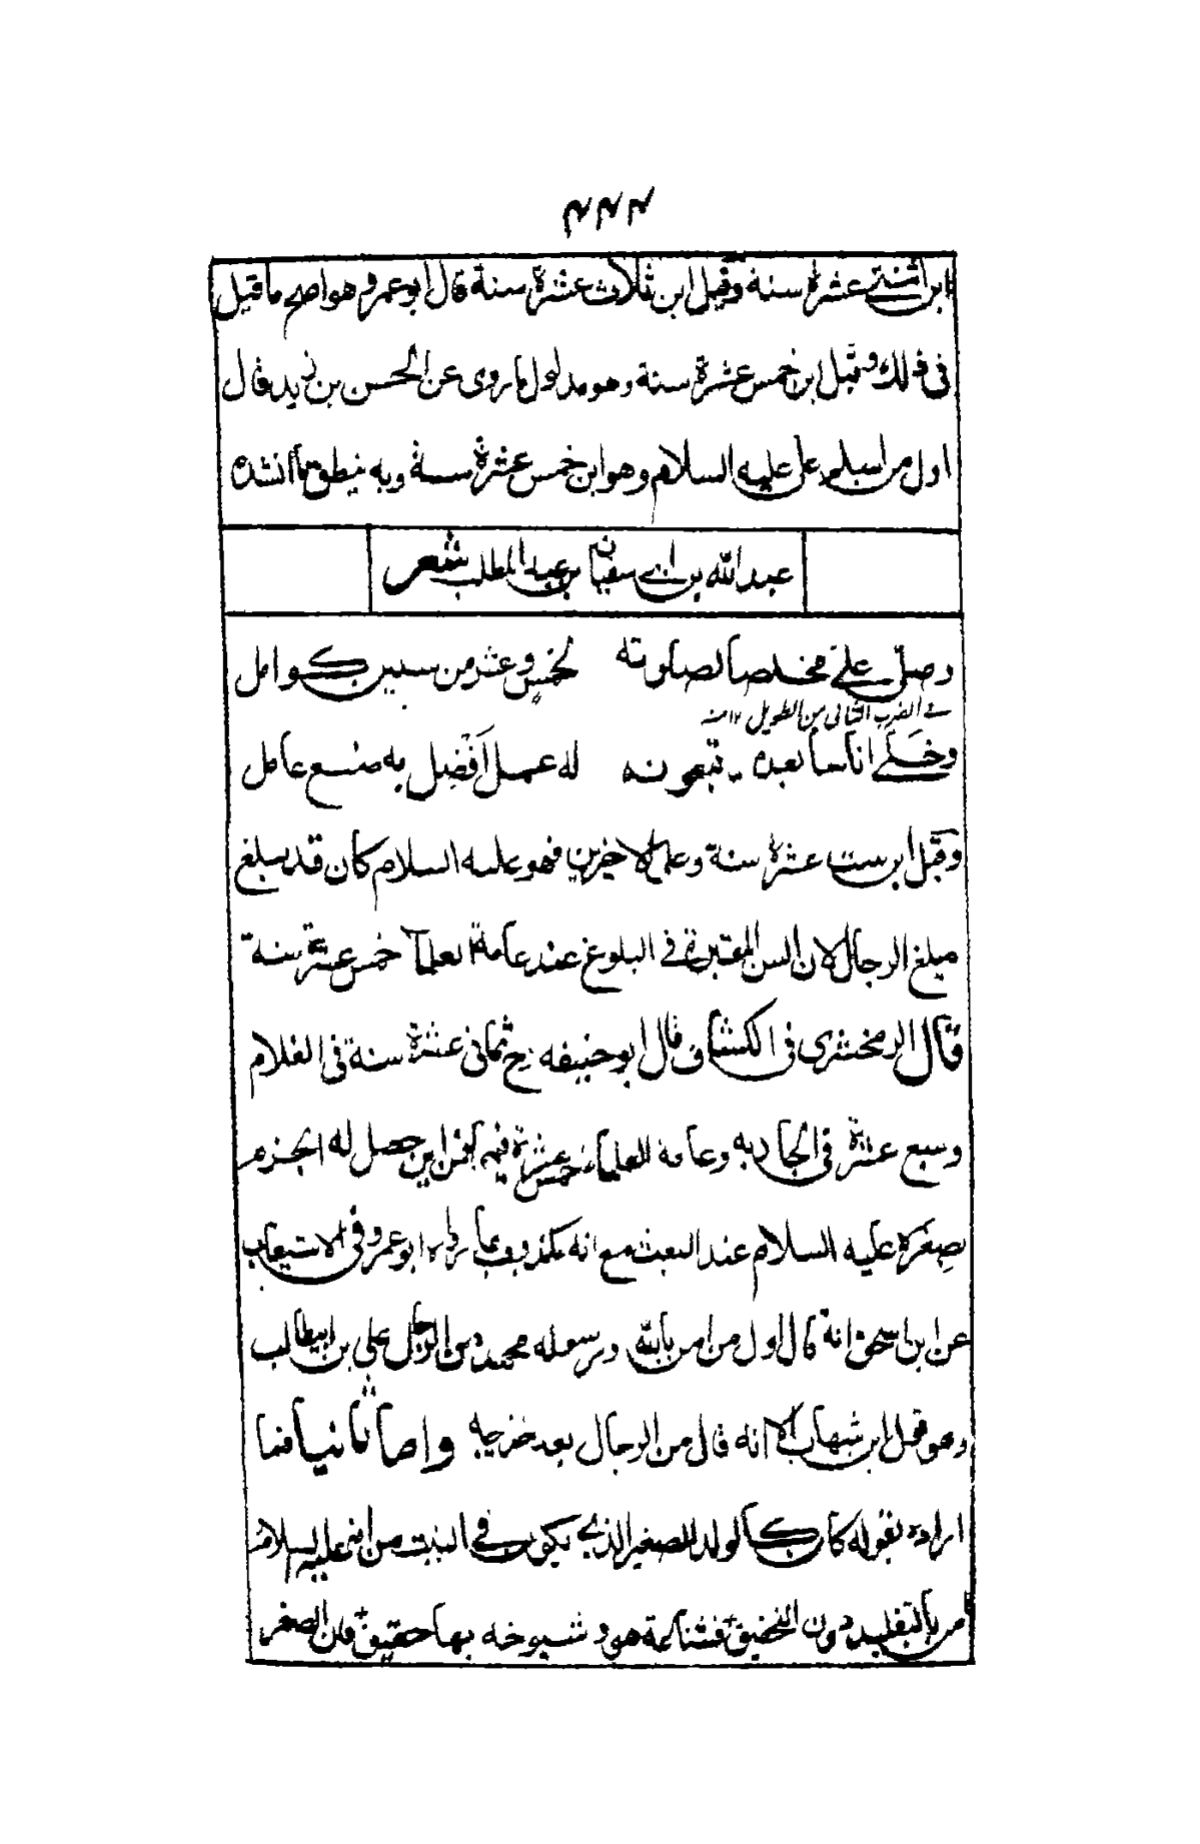 ٢٢٢
ابن اثنتي عشرة سنة وقيل ابن ثلاث عشرة سنة قال ابو عمرو هو اصح ما قيل
في ذلك وقيل ابن خمس عشرة سنة وهو مدلول ما روى عن الحسن بن زيد قال
اول من اسلم على عليه السلام وهو ابن خمس عشرة سنة وبه ينطق ما انشده
عبد الله بن ابي سفيان بن عبد المطلب شعر
وصلى علي مخلصا لصلوته لخمس وعشر من سنين كوامل
في الضرب الثاني من الطويل ١٢ منه
وخلى اناسا بعده يتبعونه له عمل افضل به صنع عامل
وقيل ابن ست عشرة سنة وعلى الاخيرين فهو عليه السلام كان قد بلغ
مبلغ الرجال لان السن المعتبرة في البلوغ عند عامة العلماء خمس عشرة سنة
قال الزمخشري في الكشاف قال ابو حنيفه رح ثماني عشرة سنة في الغلام
وسبع عشرة في الجاريه وعامة العلماء خمس عشرة فيهما فمن اين حصل له الجزم
بصغره عليه السلام عند البعث مع انه مكذوب بما رواه ابو عمرو في الاستيعاب
عن ابن اسحق انه قال اول من امن بالله ورسوله محمد من الرجال علي بن ابيطالب
وهو قول ابن شهاب الا انه قال من الرجال بعد خديجه واما ثانيا فما
اراده بقوله كان كالولد الصغير الذي يكون في البيت من انه عليه السلام
امن بالتقليد دون التحقيق فشناعة هو شيوخه بها حقيق فان الصغر